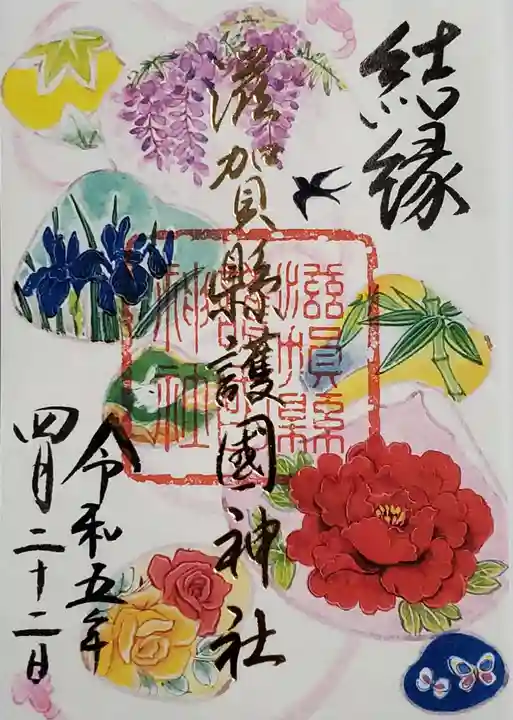 結縁
滋賀縣護國神社
滋賀縣護國神社
令和五年
四月二十二日